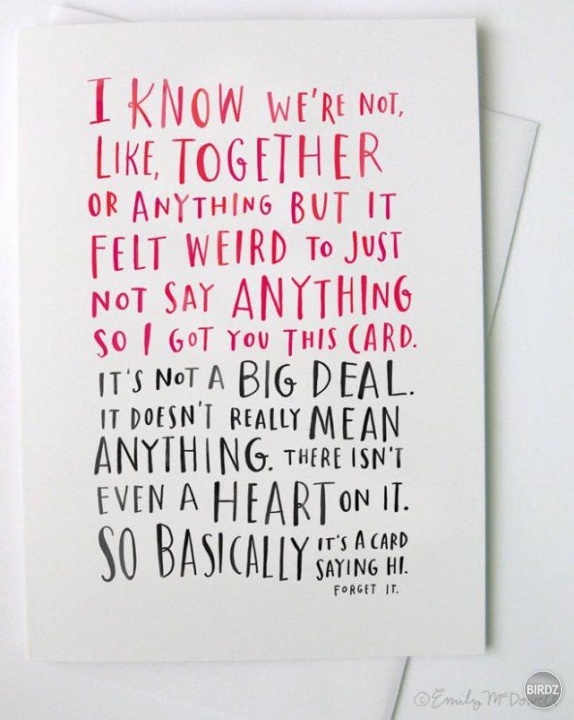 I KNOW WE'RE NOT,
LIKE, TOGETHER
OR ANYTHING BUT IT
FELT WEIRD TO JUST
NOT SAY ANYTHING
SO I GOT YOU THIS CARD.
IT'S NOT A BIG DEAL.
IT DOESN'T REALLY MEAN
ANYTHING. THERE ISN'T
EVEN A HEART ON IT.
SO BASICALLY IT'S A CARD
SAYING HI.
FORGET IT.
©Emily
BIRDZ